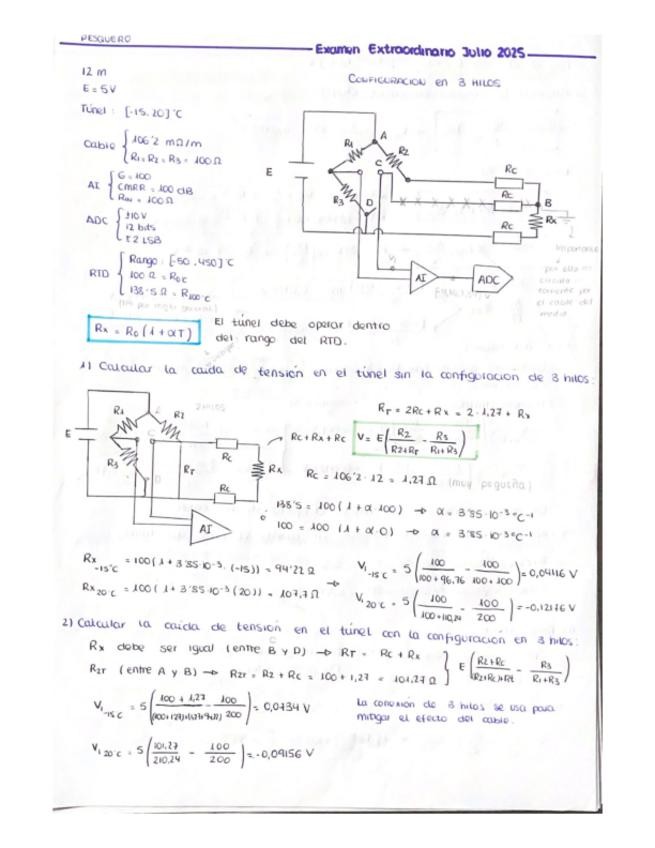 PESQUERO
Examen Extraordinario Julio 2025
12 m
E = 5V
Túnel : [-15, 20] °C
Cable { 106'2 mΩ/m
R1 = R2 = R3 = 100 Ω
AI { G = 100
CMRR = 100 dB
= 100 Ω
ADC { ±10V
12 bits
± 2 LSB
RTD { Rango : [-50, 450] °C
100 Ω = R0°C
138'5 Ω = R100°C
Rx = R0 (1 + αT)
El túnel debe operar dentro
del rango del RTD.
CONFIGURACION EN 3 HILOS
E
R1
A
R2
C
R3
D
Rc
Rc
Rc
B
Rx
V1
AI
ADC
Importante
1) Calcular la caída de tensión en el túnel sin la configuración de 3 hilos:
E
R1
R2
2 HILOS
R3
RT
Rc
Rx
Rc
AI
RT = 2Rc + Rx = 2 · 1,27 + Rx
Rc + Rx + Rc
V = E (R2/(R2+RT) - R3/(R1+R3))
Rc = 106'2 · 12 = 1,27 Ω (muy pequeña)
138'5 = 100 (1 + α · 100) → α = 3'85 · 10⁻³ °C⁻¹
100 = 100 (1 + α · 0) → α = 3'85 · 10⁻³ °C⁻¹
Rx -15°C = 100 (1 + 3'85 · 10⁻³ · (-15)) = 94'22 Ω
Rx 20°C = 100 (1 + 3'85 · 10⁻³ (20)) = 107,7 Ω
V1 -15°C = 5 (100/(100 + 96,76) - 100/(100 + 100)) = 0,04116 V
V1 20°C = 5 (100/(100 + 110,24) - 100/200) = -0,12176 V
2) Calcular la caída de tensión en el túnel con la configuración en 3 hilos:
Rx debe ser igual (entre B y D) → RT = Rc + Rx
R2T (entre A y B) → R2T = R2 + Rc = 100 + 1,27 = 101,27 Ω
E ((R2+Rc)/((R2+Rc)+RT) - R3/(R1+R3))
V1 -15°C = 5 ( 100 + 1,27 - 100/200) = 0,0734 V
V1 20°C = 5 (101,27/210,24 - 100/200) = -0,09156 V
La conexión de 3 hilos se usa para
mitigar el efecto del cable.